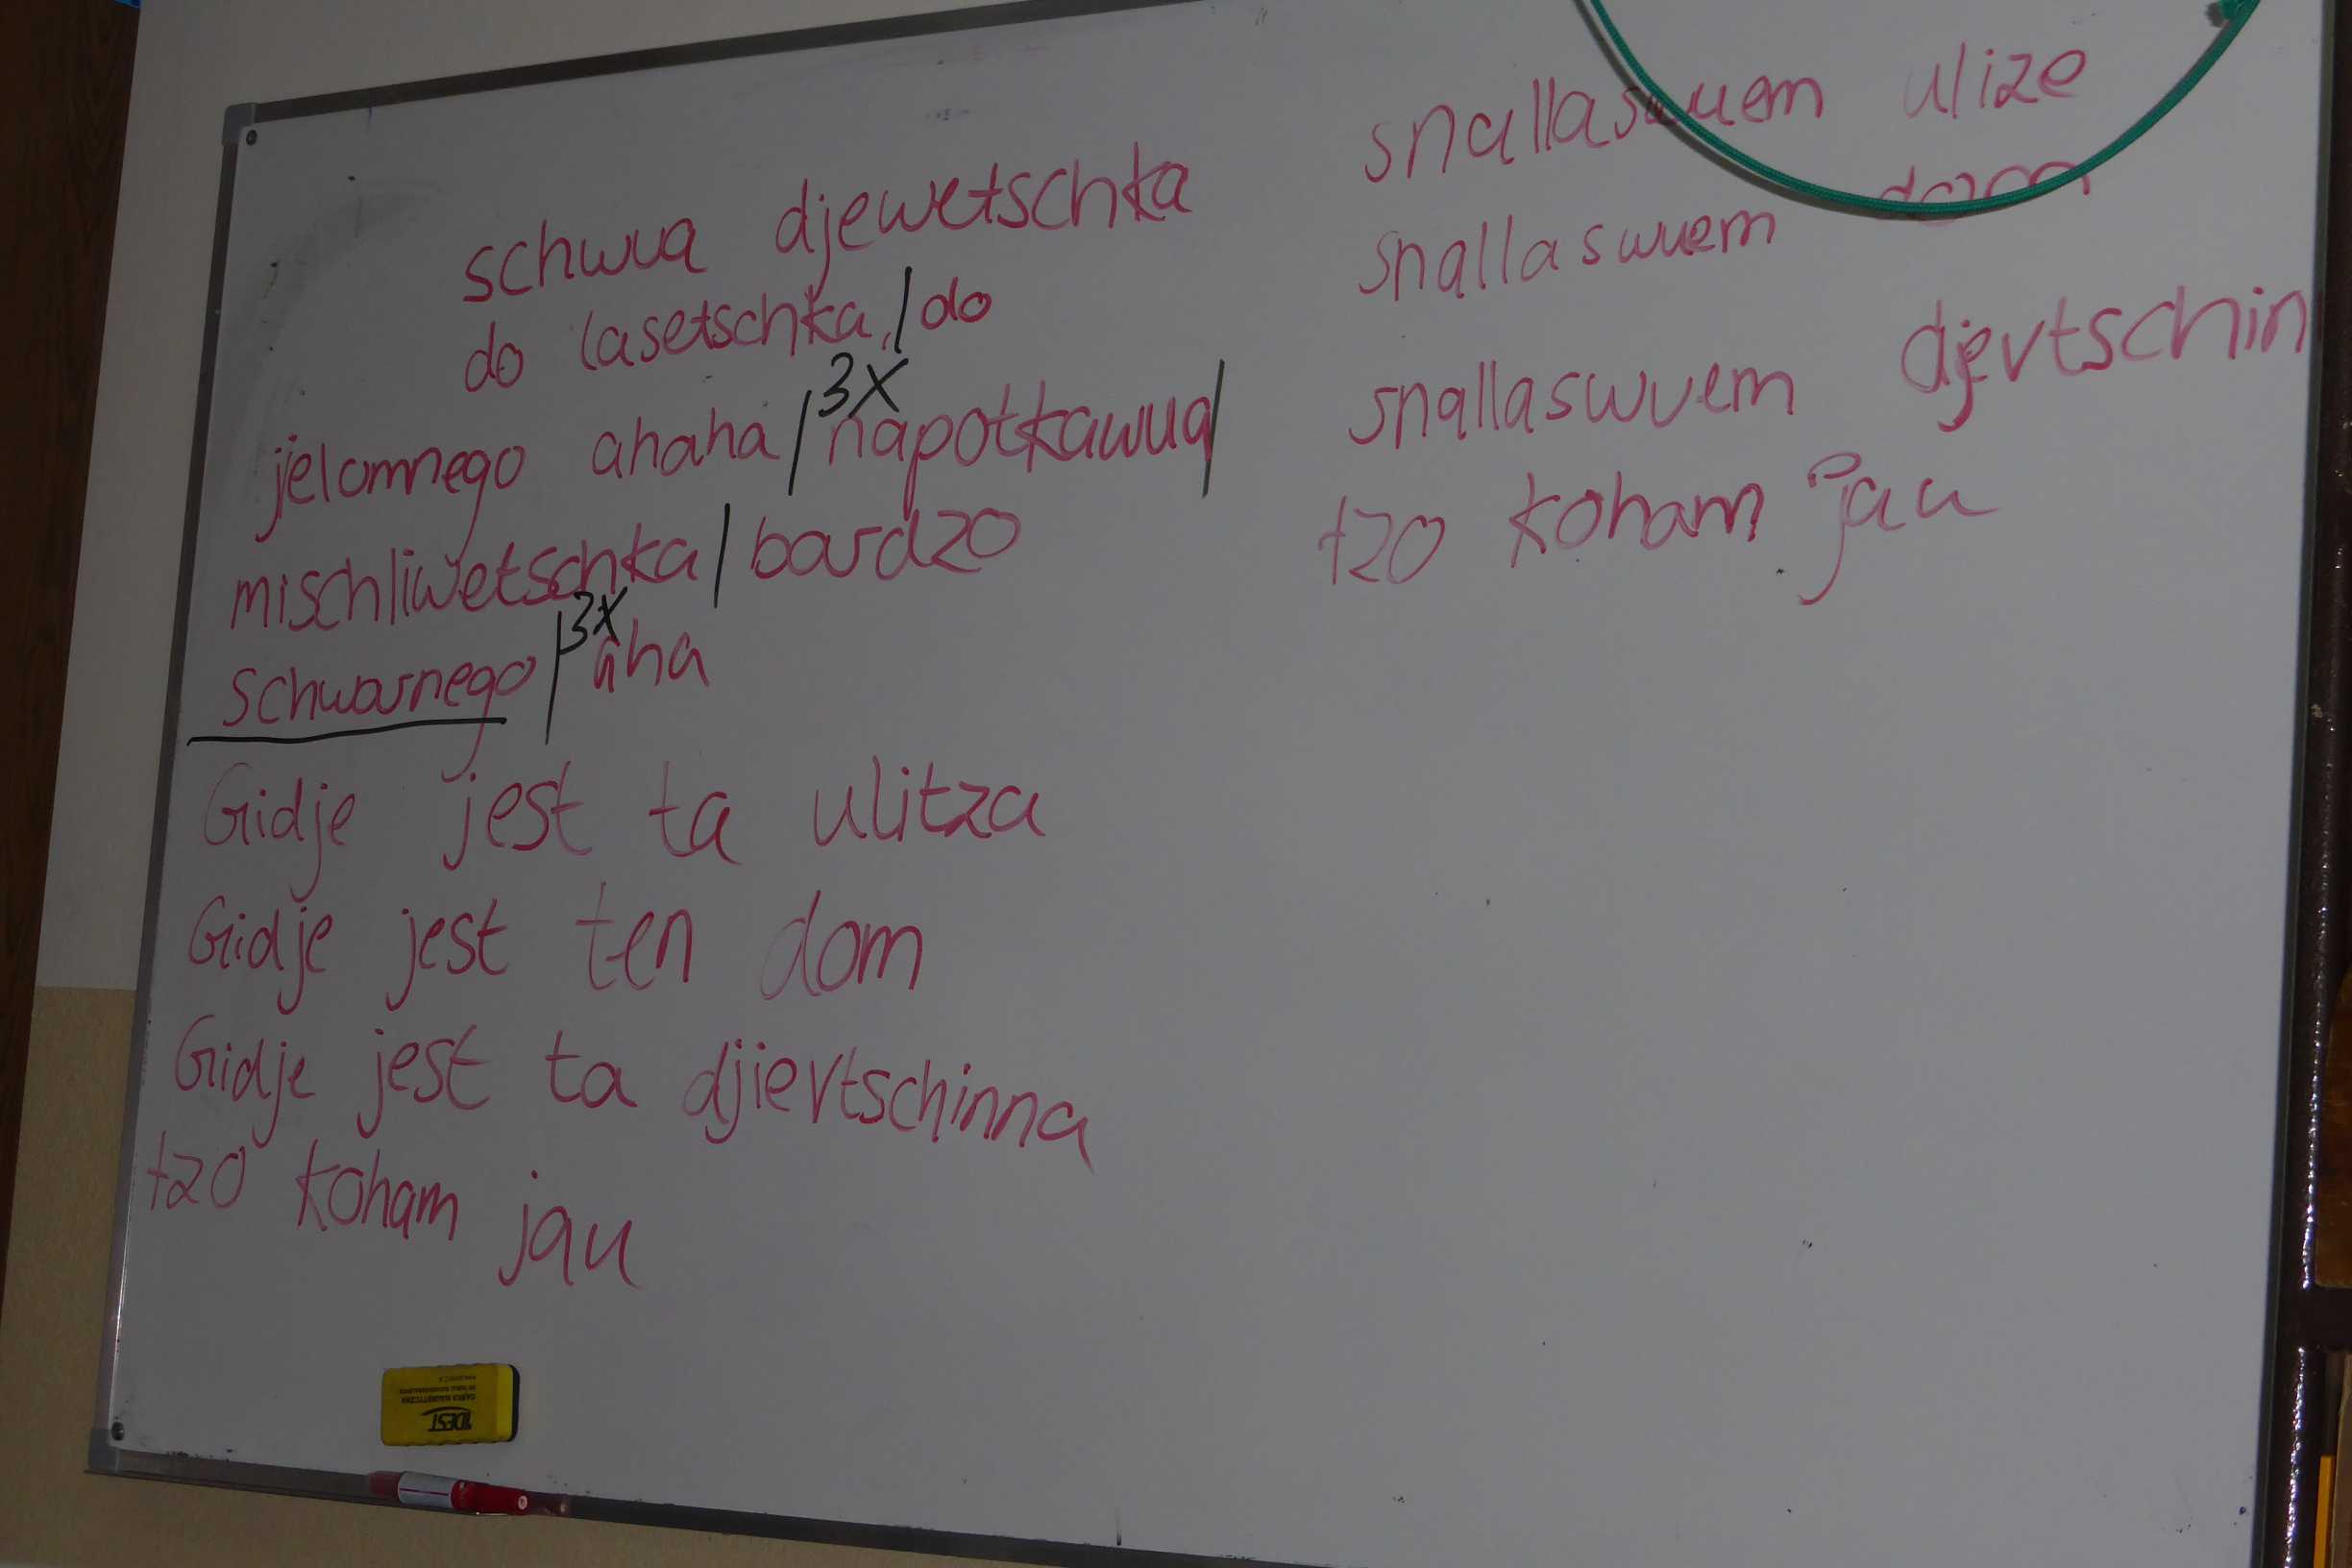 schwua djewetschka
do lasetschka, / do
jelomnego ahaha / 3x napotkawua /
mischliwetschka / bardzo
schwarnego / 3x aha
Gidje jest ta ulitza
Gidje jest ten dom
Gidje jest ta djievtschinna
tzo koham jau
snallaswuem ulize
snallaswuem dom
snallaswuem djevtschin
tzo koham jau